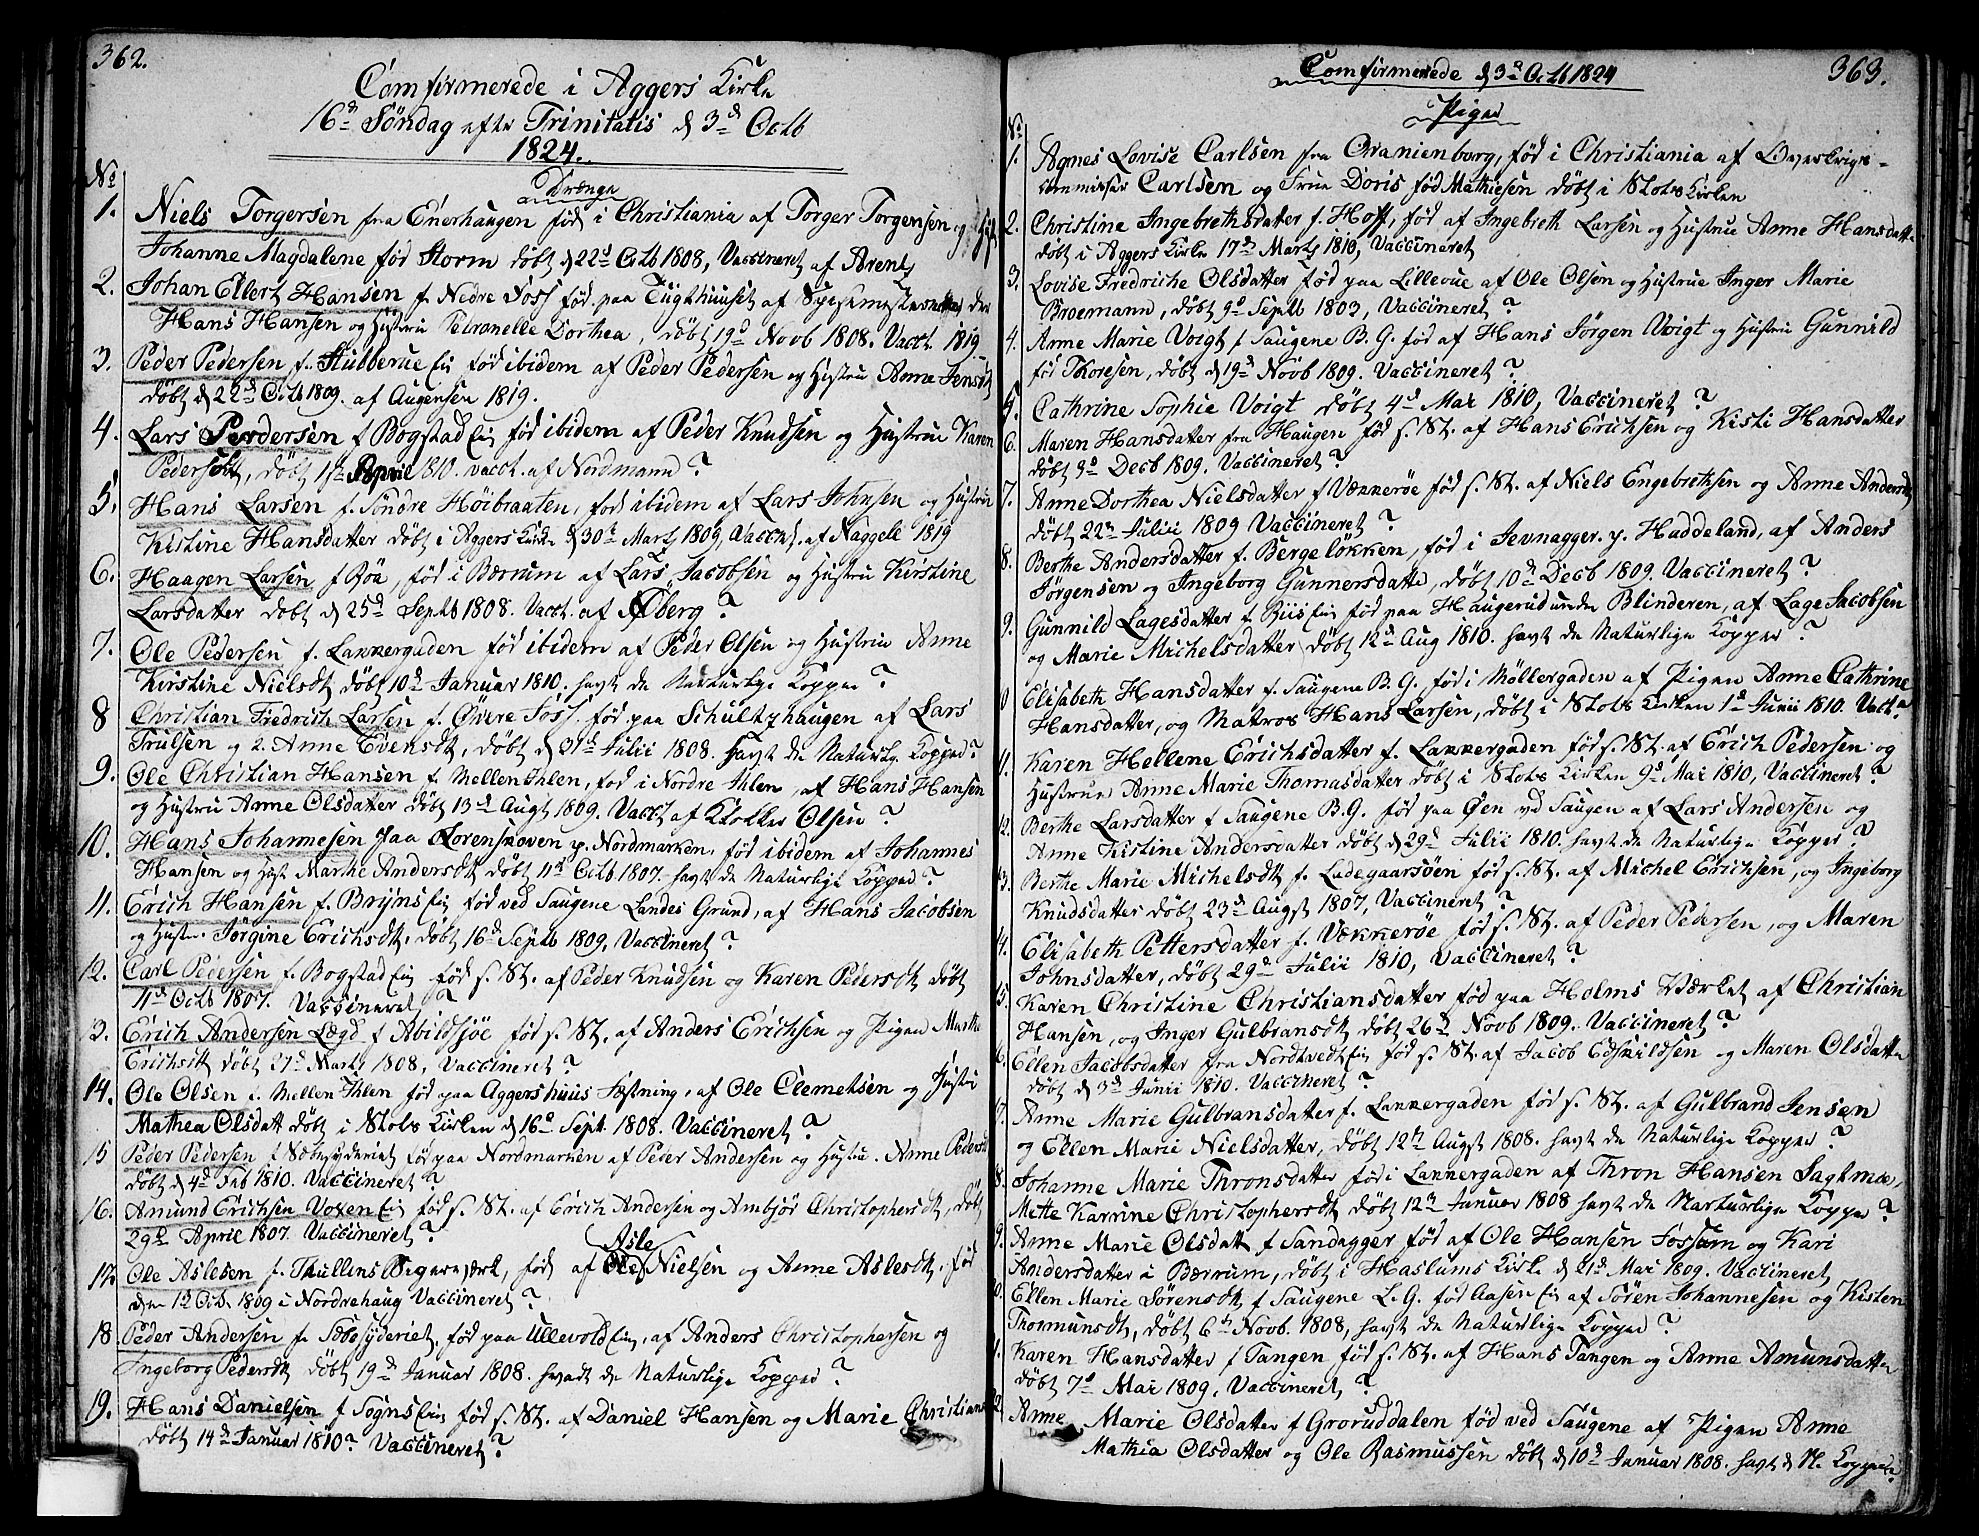 362.
Comfirmerede i Aggers Kirke
16de Söndag efter Trinitatis d 3d Octb
1824.
No
Drænge
1. Niels Torgersen fra Enerhaugen föd i Christiania af Torger Torgensen og Hust
Johanne Magdalene föd Storm döbt d 22d Octb 1808, Vaccineret af Arentz
2. Johan Ellert Hansen f. Nedre Foss föd paa Tugthuuset af
Hans Hansen og Hustru Petronelle Dorthea, döbt 19d Novb 1808. Vacct. 1819
3. Peder Pedersen f. Stubberue Eie föd ibidem af Peder Pedersen og Hustru Anne Jensdt
döbt d 22d Octb 1809. af Augensen 1819.
4. Lars Perdersen f Bogstad Eie föd ibidem af Peder Knudsen og Hustrue Karen
Pedersdt, döbt 1st April 1810. vacct. af Nordmann?
5. Hans Larsen f. Söndre Höibraaten, föd ibidem af Lars Johnsen og Hustrue
Kistine Hansdatter döbt i Aggers Kirke d 30d Marts 1809, Vaccd. af Naggell 1819
6. Haagen Larsen f Röa, föd i Bærrum af Lars Jacobsen og Hustru Kirstine
Larsdatter döbt d 25d Septb 1808. Vacct. af Öberg?
7. Ole Pedersen f. Lakkergaden föd ibidem af Peder Olsen og Hustrue Anne
Kirstine Nielsdt döbt 10d Januar 1810. havt de Naturlige Kopper?
8 Christian Fredrich Larsen f. Övere Foss. föd paa Schultzhaugen af Lars
Trulsen og 2. Anne Evensdt, döbt d 31d Julii 1808. Havt de Naturlg. Kopper?
9. Ole Christian Hansen f. Mellem Ihlen, föd i Nordre Ihlen, af Hans Hansen
og Hustru Anne Olsdatter döbt 13d Augt 1809. Vacct af Klokker Olsen?
10. Hans Johannesen paa Lorenskoven p. Nordmarken, föd ibidem af Johannes
Hansen og Hust Marthe Andersdt döbt 11d Octb 1807. havt de Naturlige Kopper?
11. Erich Hansen f. Bryns Eie föd ved Saugene Landes Grund, af Hans Jacobsen
og Hustr. Jörgine Erichsdt, döbt 16d Septb 1809, Vaccineret?
12. Carl Pedersen f. Bogstad Eie föd s. St. af Peder Knudsen og Karen Pedersdt döbt
11d Octb 1807. Vaccineret?
13. Erich Andersen Lægd f Abildsjöe föd s. St. af Anders Erichsen og Pigen Marthe
Erichsdt döbt 27d Marts 1808, Vaccineret?
14. Ole Olsen f. Mellem Ihlen föd paa Aggershuus Festning, af Ole Clemetsen og Hustru
Mathea Olsdatt döbt i Slots Kirken d 16d Sept. 1808. Vaccineret?
15 Peder Pedersen f Sæbesyderiet föd paa Nordmarken af Peder Andersen og Hustru. Anne Pedersdt
döbt d 4d Feb 1810. Vaccineret?
16. Amund Erichsen Voxen Eie föd s. St. af Erich Andersen og Ambjör Christophersdt, döbt
29d April 1807. Vaccineret?
Asle
17. Ole Aslesen f. Thullens Tegnværk, föd af Ole Nielsen og Anne Aslesdt, föd
den 1d Octb. 1809 i Nordrehaug Vaccineret?
18 Peder Andersen f. Sæbesyderiet, föd paa Ullevold Eie, af Anders Christophersen og
Ingeborg Pedersdt döbt 19d Januar 1808. havdt de Naturlige Kopper?
19. Hans Danielsen f Sogns Eie föd s. St. af Daniel Hansen og Marie Christians
döbt 14d Januar 1810? Vaccineret?
Comfirmerede d 3d Octb 1824
363.
Piger
No
1. Agnes Lovise Carlsen fra Oranienborg, föd i Christiania af Overkrigs-
commissær Carlsen og Frue Doris föd Mathiesen döbt i Slots Kirken
2. Christine Ingebrethsdatter f. Hoff, föd af Ingebreth Larsen og Hustrue Anne Hansdatter
döbt i Aggers Kirke 17d Marts 1810, Vaccineret
3. Lovise Fredriche Olsdatter föd paa Lillevue af Ole Olsen og Hustrue Inger Marie
Broemann, döbt 9d Septb 1803, Vaccineret?
4. Anne Marie Voigt f Saugene B. G. föd af Hans Jörgen Voigt og Hustru Gunnild
föd Thoresen, döbt d 19d Novb 1809. Vaccineret?
5. Cathrine Sophie Voigt döbt 4d Mai 1810, Vaccineret?
6. Maren Hansdatter fra Haugen föd s. St. af Hans Erichsen og Kisti Hansdatter
döbt 3d Decb 1809. Vaccineret?
7. Anne Dorthea Nielsdatter f Vækkeröe föd s. St. af Niels Engebrethsen og Anne Andersdt
döbt 22d Julii 1809 Vaccineret?
8. Berthe Andersdatter f. Bergelökken, föd i Jevnagger p. Haddeland, af Anders
Jörgensen og Ingeborg Gunnersdatter, döbt 10d Decb 1809. Vaccineret?
9. Gunnild Lagesdatter f. Riis Eie föd paa Haugerud under Blinderen, af Lage Jacobsen
og Marie Michelsdatter döbt 12d Aug 1810. havt de Naturlige Kopper?
0 Elisabeth Hansdatter f. Saugene B. G. föd i Möllergaden af Pigen Anne Cathrine
Hansdatter, og Matros Hans Larsen, döbt i Slots Kirken 1d Junii 1810. Vacct.
11. Karen Hellene Erichsdatter f. Lakkergaden föd s. St. af Erich Pedersen og
Hustrue Anne Marie Thomasdatter döbt i Slots Kirken 9d Mai 1810, Vaccineret?
12. Berthe Larsdatter f Saugene B. G. föd paa Öen ved Saugen af Lars Andersen og
Anne Kistine Andersdatter döbt d 29d Julii 1810. havt de Naturlige Kopper?
13. Berthe Marie Michelsdt f. Ladegaarsöen föd s. St. af Michel Erichsen, og Ingeborg
Knudsdatter döbt 23d Augst 1807, Vaccineret?
14. Elisabeth Pettersdatter f. Vækkeröe föd s. St. af Peder Pedersen, og Maren
Johnsdatter, döbt 29d Julii 1810, Vaccineret?
15. Karen Christine Christiansdatter föd paa Holms Værket af Christian
Hansen, og Inger Gulbransdt döbt 26d Novb 1809. Vaccineret?
6. Ellen Jacobsdatter fra Nordtvedt Eie föd s. St. af Jacob Edskildsen og Maren Olsdatter
döbt d 3d Junii 1810. Vaccineret?
7. Anne Marie Gulbransdatter f. Lakkergaden föd s. St. af Gulbrand Jensen
og Ellen Marie Nielsdatter, döbt 12d Augst 1808. havt de Naturlige Kopper?
8. Johanne Marie Thronsdatter föd i Lakkergaden af Thron Hansen Sagtmæ,
Mette Karrine Christophersdt döbt 12d Januar 1808 havt de Narturlige Kopper?
9. Anne Marie Olsdatt f Sandagger föd af Ole Hansen Fossum og Kari
Andersdatter i Bærrum, döbt i Haslums Kirke d 21d Mai 1809. Vaccineret
0. Ellen Marie Sörensdt f Saugene L. G. föd Aasen Eie af Sören Johannesen og Kisten
Thormunsdt, döbt 6d Novb. 1808, havt de Naturlige Kopper?
1. Karen Hansdatter f Tangen föd s. St. af Hans Tangen og Anne Amunsdatter
döbt 7d Mai 1809, Vaccineret?
2. Anne Marie Olsdatter f Groruddalen föd ved Saugene af Pigen Anne
Mathia Olsdatter og Ole Rasmussen döbt d 10d Januar 1808. havt d N. Kopper?